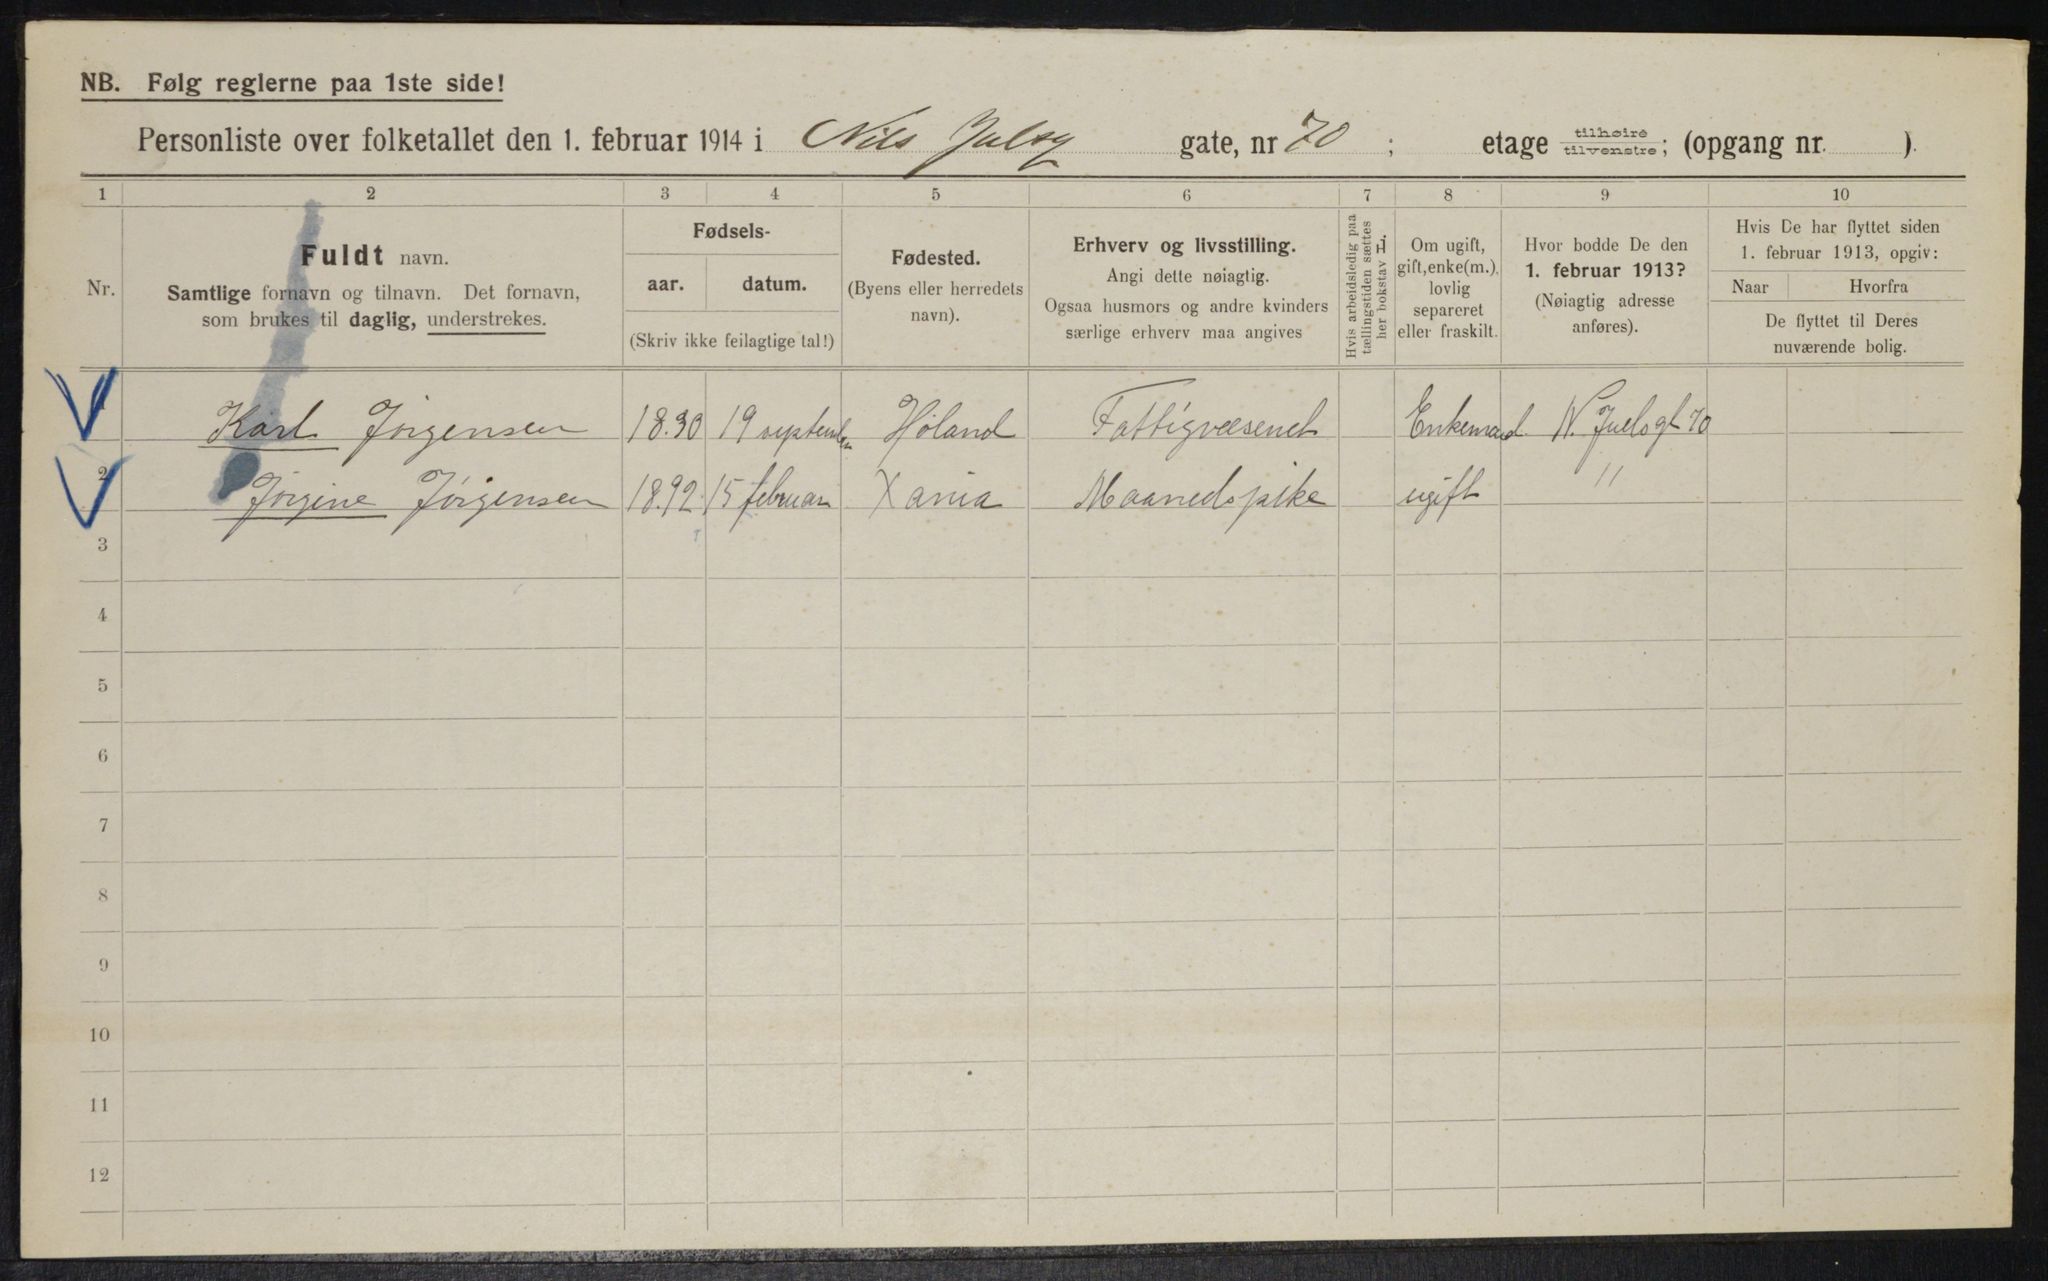 NB. Følg reglerne paa 1ste side!
Personliste over folketallet den 1. februar 1914 i Nils Julsg gate, nr 70 ; etage tilhøire tilvenstre; (opgang nr. ).
1 2 3 4 5 6 7 8 9 10
Nr.
Fuldt navn.
Samtlige fornavn og tilnavn. Det fornavn,
som brukes til daglig, understrekes.
Fødsels-
aar. datum.
(Skriv ikke feilagtige tal!)
Fødested.
(Byens eller herredets
navn).
Erhverv og livsstilling.
Angi dette nøiagtig.
Ogsaa husmors og andre kvinders
særlige erhverv maa angives
Hvis arbeidsledig paa
tællingstiden sættes
her bokstav L.
Om ugift,
gift, enke(m.),
lovlig
separeret
eller fraskilt.
Hvor bodde De den
1. februar 1913?
(Nøiagtig adresse
anføres).
Hvis De har flyttet siden
1. februar 1913, opgiv:
Naar Hvorfra
De flyttet til Deres
nuværende bolig.
1 Karl Jørgensen 18.30 19 september Høland Fattigvæsenet Enkemand N. Juelsgt 70
2 Jørgine Jørgensen 18.92 15 februar Xania Maanedspike ugift "
3
4
5
6
7
8
9
10
11
12